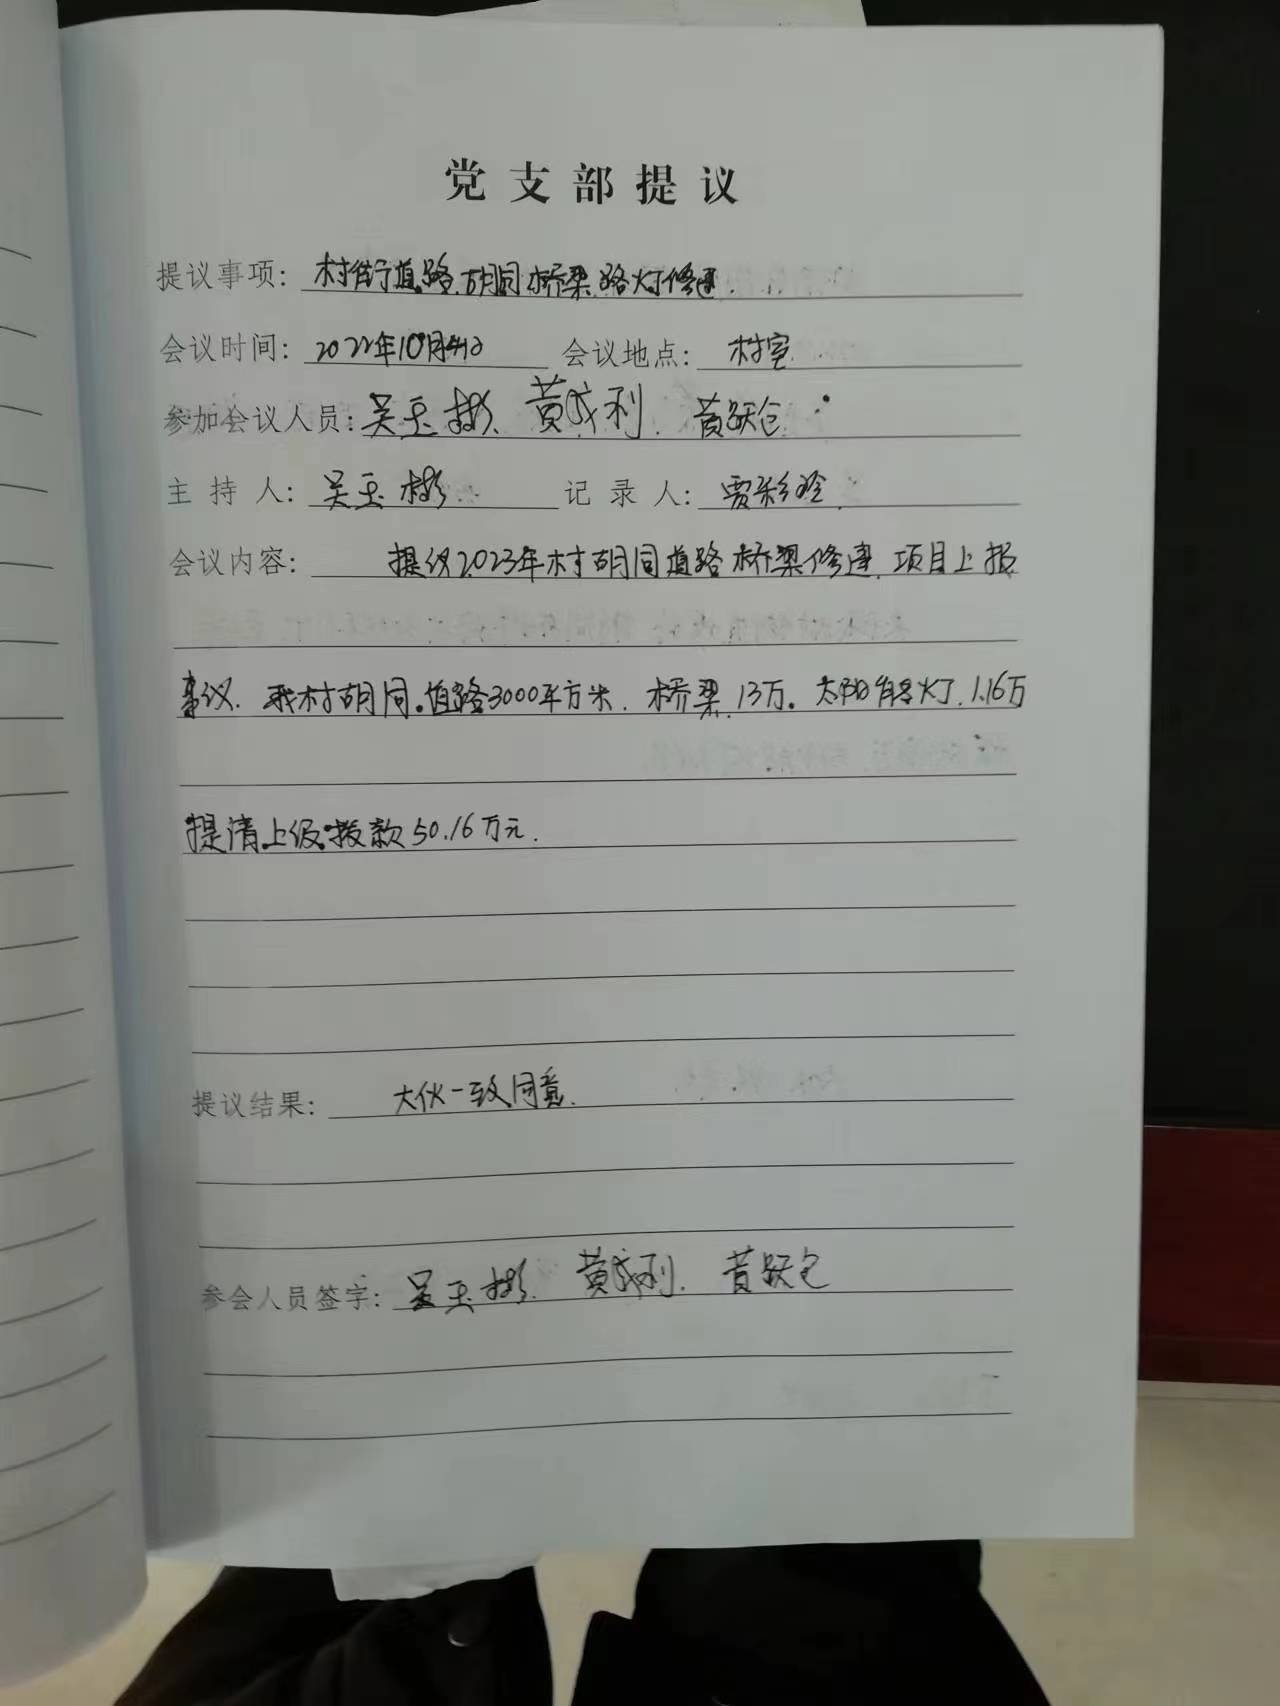 党支部提议
提议事项: 村街道路.胡同桥梁.路灯修建.
会议时间: 2022年10月4日 会议地点: 村室
参加会议人员: 吴玉彬. 黄成利. 黄跃仓.
主持人: 吴玉彬. 记录人: 贾彩玲.
会议内容: 提议2023年村胡同道路桥梁修建.项目上报
事议. 我村胡同.道路3000平方米. 桥梁.13万. 太阳能灯.1.16万
提请上级.拨款50.16万元.
提议结果: 大伙一致同意.
参会人员签字: 吴玉彬. 黄成利. 黄跃仓